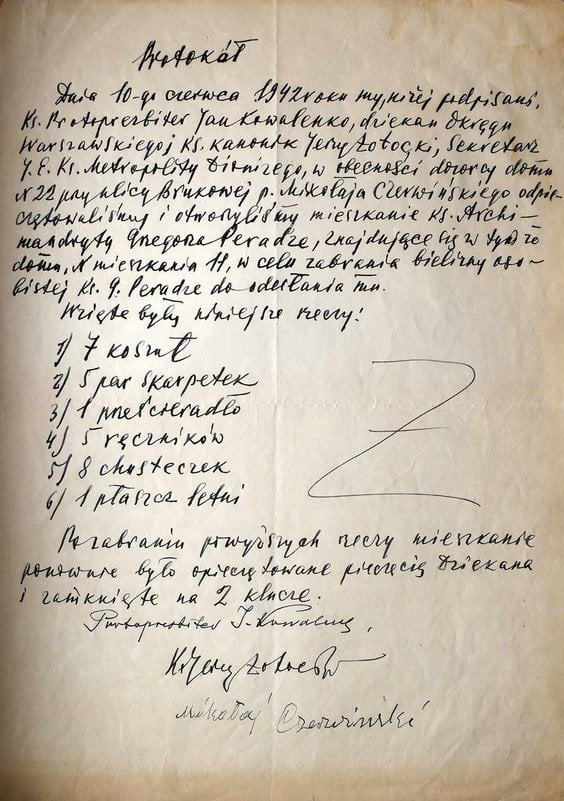 Protokół
Dnia 10-go czerwca 1942 roku my, niżej podpisani,
Ks. Protoprezbiter Jan Kowalenko, dziekan Okręgu
Warszawskiego, i Ks. kanonik Jerzy Łotocki, Sekretarz
J. E. Ks. Metropolity Dionizego, w obecności dozorcy domu
N 22 przy ulicy Brukowej p. Mikołaja Czerwińskiego odpie-
czętowaliśmy i otworzyliśmy mieszkanie Ks. Archi-
mandryty Grzegorza Peradze, znajdujące się w tymże
domu, N mieszkania 11, w celu zabrania bielizny oso-
bistej Ks. G. Peradze do odesłania mu.
Wzięte były niniejsze rzeczy:
1) 7 koszul
2) 5 par skarpetek
3) 1 prześcieradło
4) 5 ręczników
5) 8 chusteczek
6) 1 płaszcz letni
Z
Po zabraniu powyższych rzeczy mieszkanie
ponownie było opieczętowane pieczęcią Dziekana
i zamknięte na 2 klucze.
Protoprezbiter J. Kowalenko,
Ks Jerzy Łotocki
Mikołaj Czerwiński